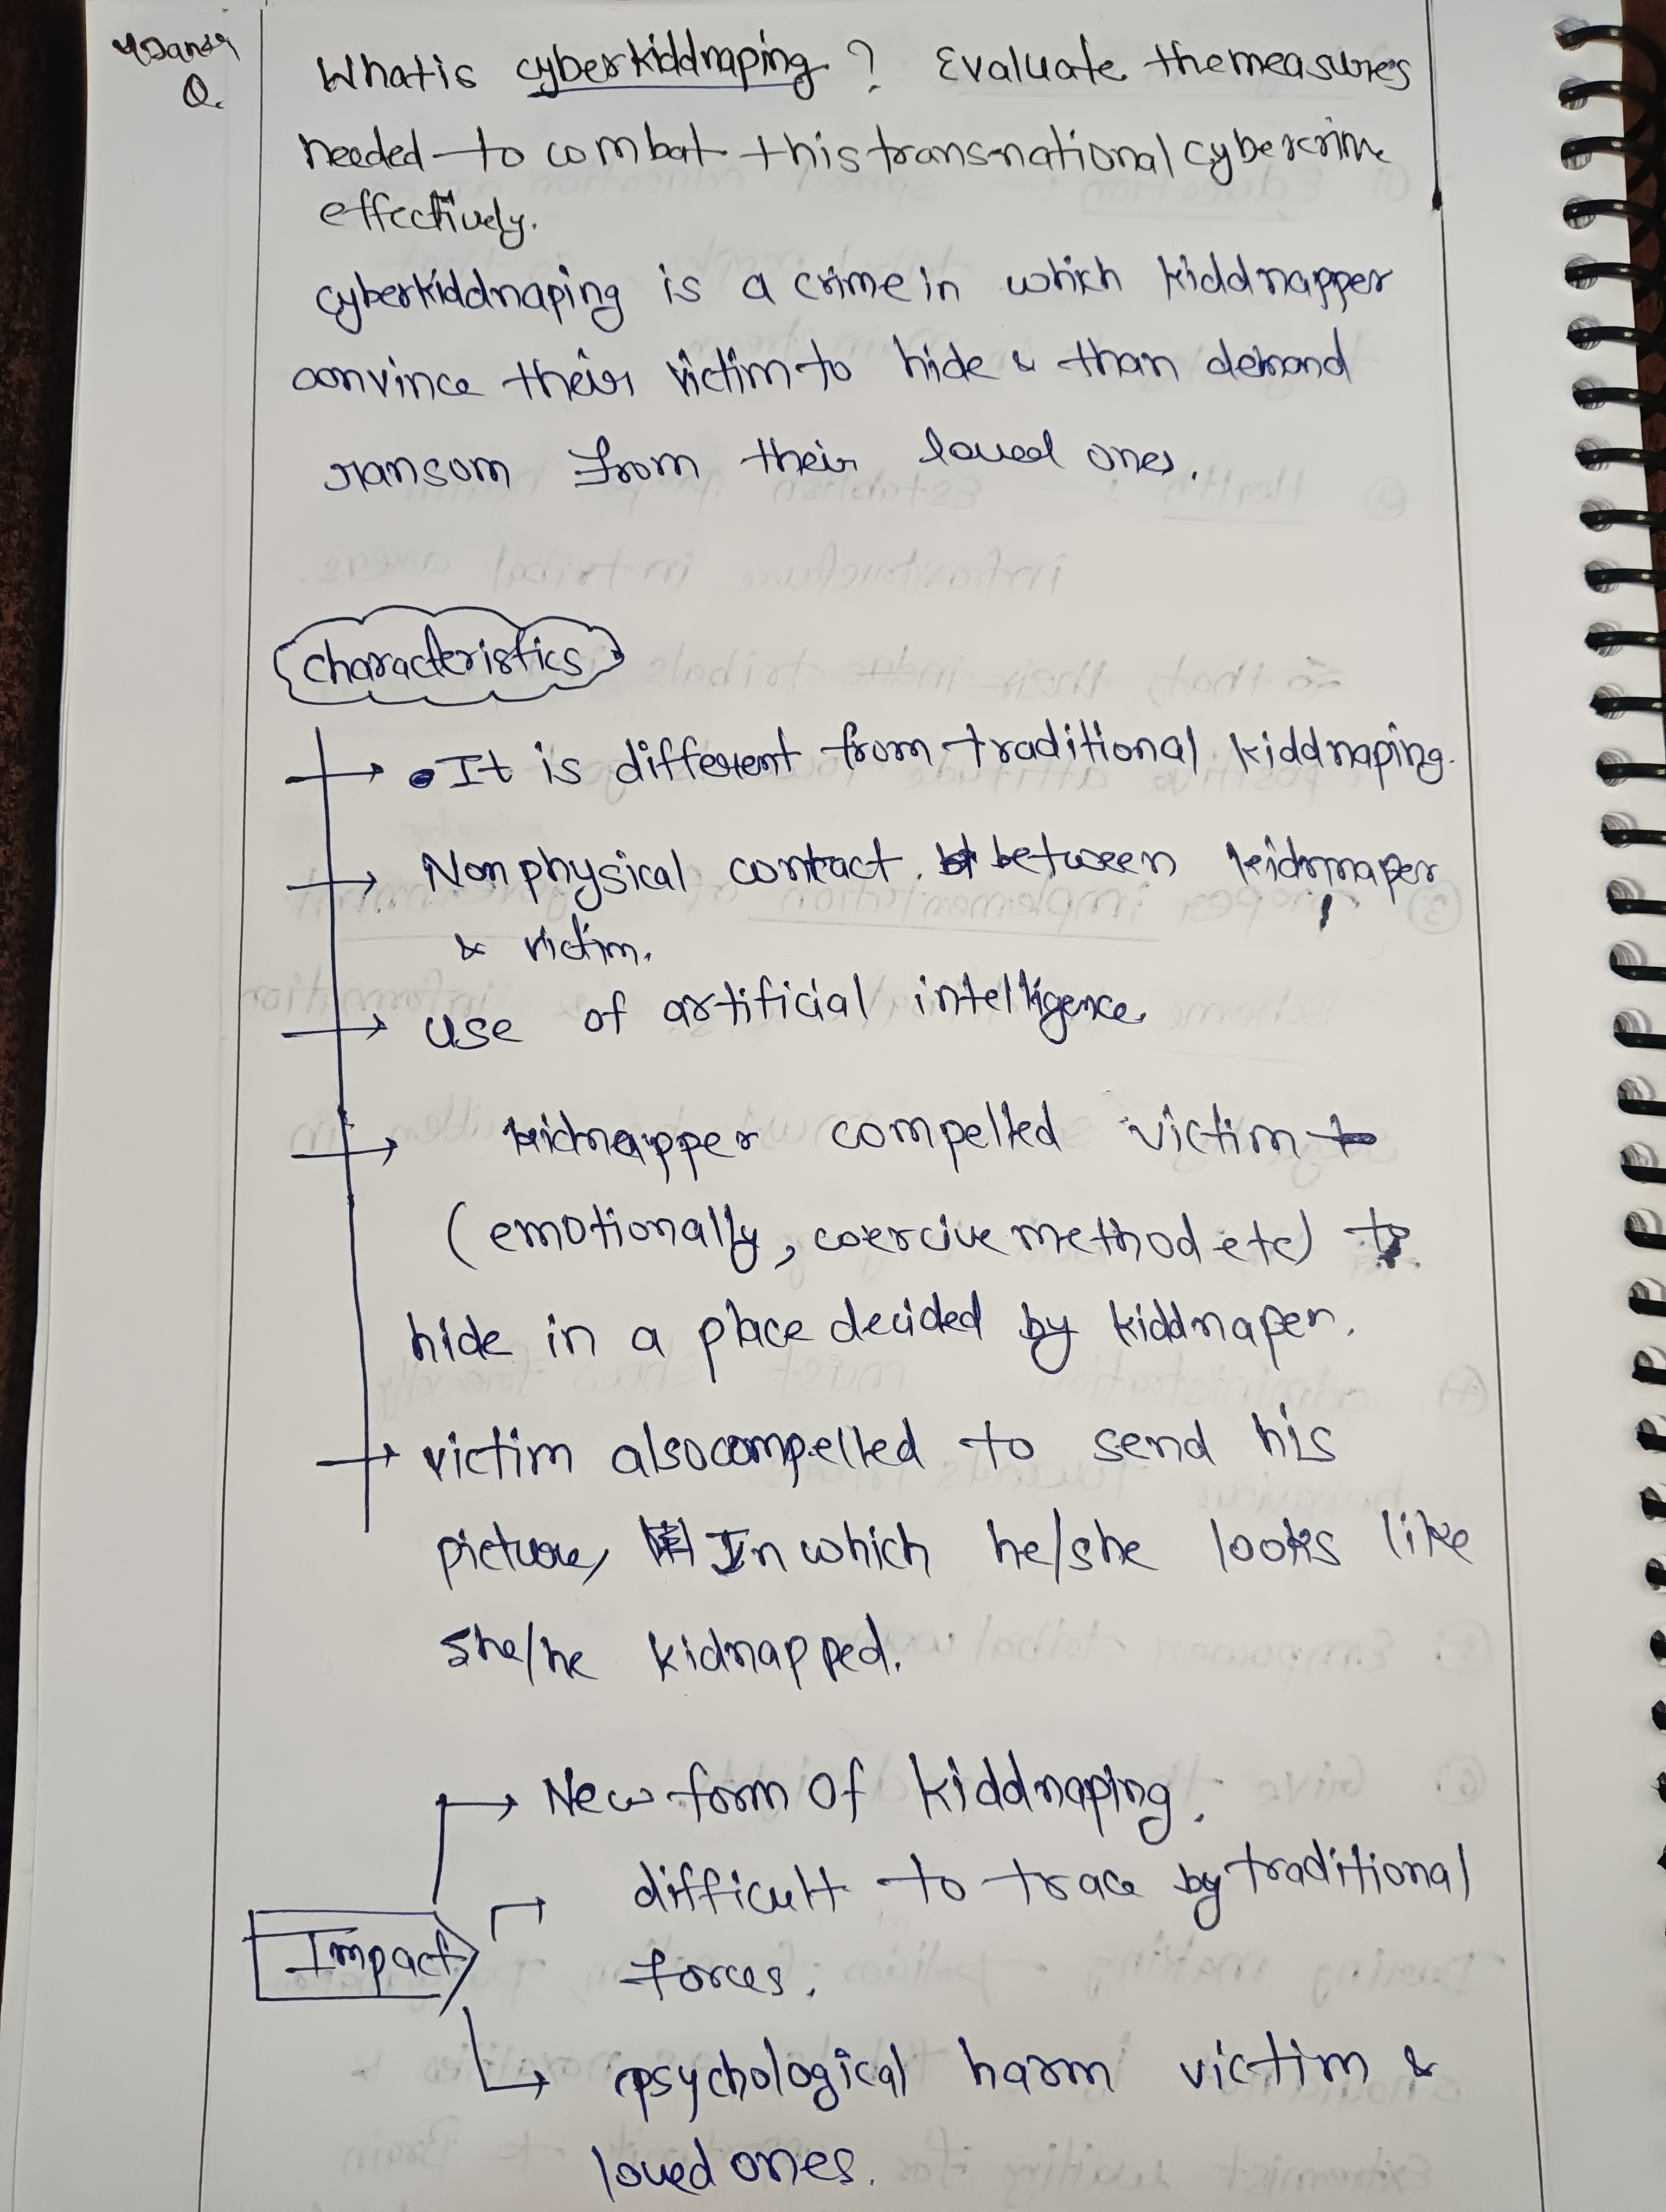 4 Jan 24
Q.
What is cyberkiddnaping ? Evaluate the measures
needed to combat this transnational cybercrime
effectively.
cyberkiddnaping is a crime in which kiddnapper
convince their victim to hide & than demand
ransom from their loved ones.
characteristics
It is different from traditional kiddnaping.
Non physical contact between kidnnaper
& victim.
use of artificial intelligence
kidnapper compelled victim
(emotionally, coercive method etc) to
hide in a place decided by kiddnaper.
victim also compelled to send his
picture, In which he/she looks like
she/he kidnapped.
New form of kiddnaping.
difficult to trace by traditional
Impact
forces.
psychological harm victim &
loved ones.